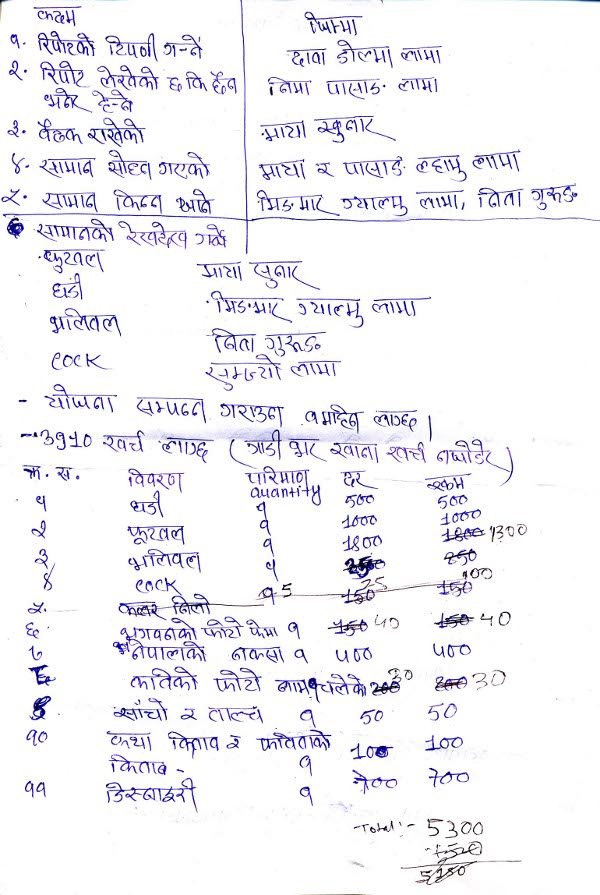 कदम जिम्मा
१. रिपोटको टिपनी गर्ने दावा डोल्मा लामा
२. रिपोट लेखेको छ कि छैन निमा पासाङ लामा
भनेर हेर्ने
३. बैठक राखेको माया सुनार
४. सामान सोध्न गएको माया र पासाङ ल्हामु लामा
५. सामान किन्न जाने मिङमार ग्याल्मु लामा, निता गुरुङ
६ सामानको रेखदेख गर्ने
फुटवल माया सुनार
घडी मिङमार ग्याल्मु लामा
भलिवल निता गुरुङ
cock लामा
- योजना सम्पन्न गराउन १ महिना लाग्छ।
- खर्च लाग्छ (गाडी भार खाना खर्च नजोडेर)
क्र. स. विवरण परिमाण quantity दर रकम
१ घडी १ 500 500
२ फूटवल १ 1000 1000
३ भलिवल १ 1800 1800 1300
४ cock १ 5 25 250 100
५. कलर निलो 150 150
६ भगवानको फोटो फेमा १ 150 40 150 40
७ नेपालको नक्सा १ ४०० ४००
30 200 30
साँचो र ताल्चा १ 50 50
१० कथा किताव र कविताको 100 100
किताव - १
११ डिस्नाइरी १ 700 700
Total:- 5300
5150